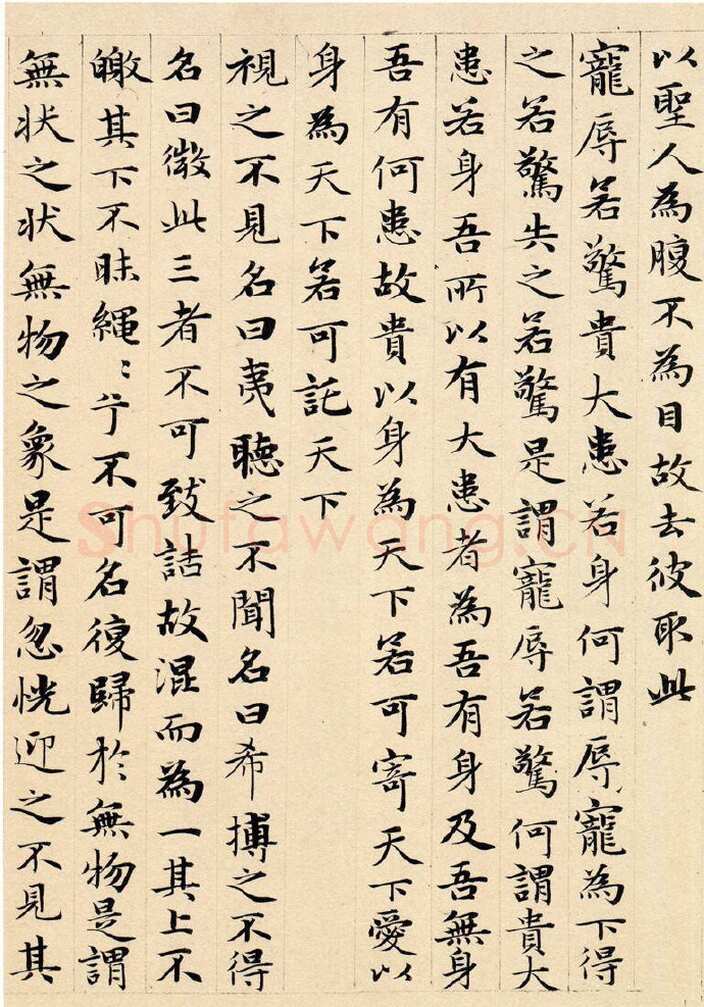 以聖人為腹不為目故去彼取此
寵辱若驚貴大患若身何謂辱寵為下得
之若驚失之若驚是謂寵辱若驚何謂貴大
患若身吾所以有大患者為吾有身及吾無身
吾有何患故貴以身為天下若可寄天下愛以
身為天下若可託天下
視之不見名曰夷聽之不聞名曰希搏之不得
名曰微此三者不可致詰故混而為一其上不
皦其下不昧繩〻兮不可名復歸於無物是謂
無狀之狀無物之象是謂忽恍迎之不見其
Shufawang.CN